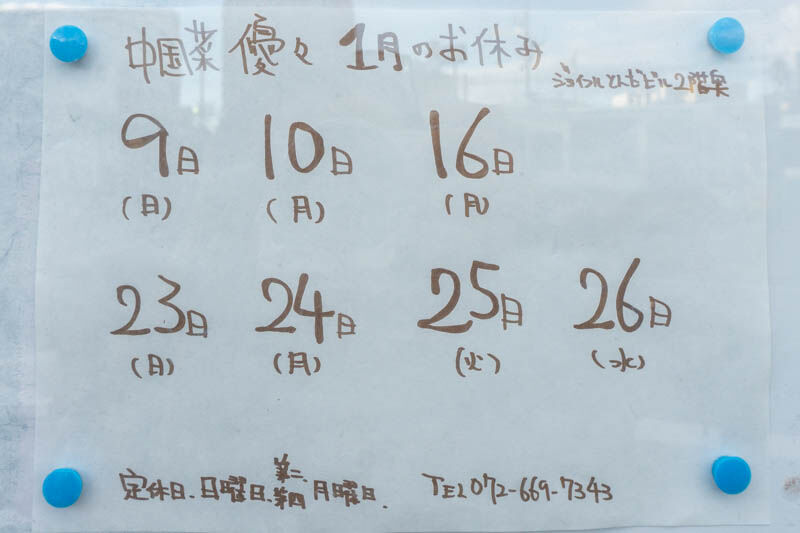 中国菜 優々 1月のお休み
ジョイフルとんだビル2階奥
9日 10日 16日
(日) (月) (月)
23日 24日 25日 26日
(日) (月) (火) (水)
定休日、日曜日、第二、第四 月曜日、 TEL 072-669-7343